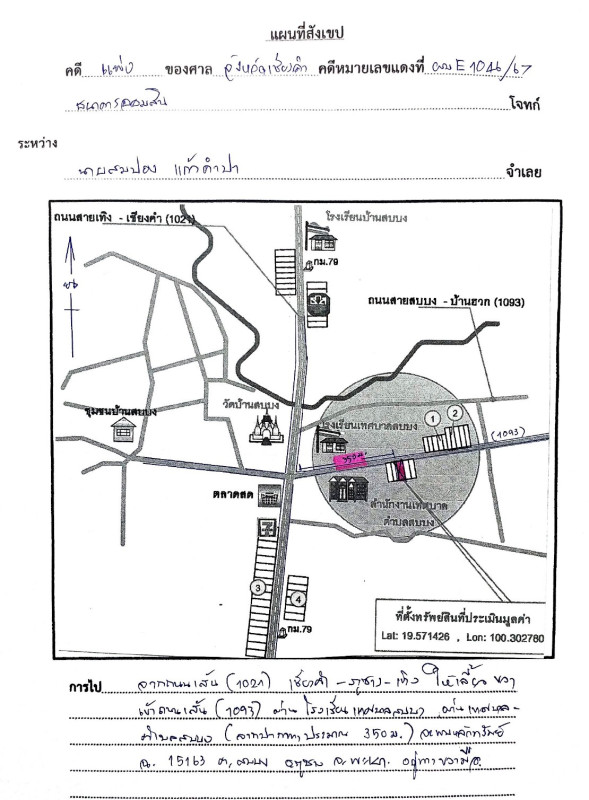 แผนที่สังเขป
คดี แพ่ง ของศาล จังหวัดเชียงคำ คดีหมายเลขแดงที่ ผบE1046/67
ธนาคารออมสิน โจทก์
ระหว่าง
นายสมปอง แก้วคำปา จำเลย
ถนนสายเทิง - เชียงคำ (1021)
โรงเรียนบ้านสบบง
กม.79
ถนนสายสบบง - บ้านฮวก (1093)
วัดบ้านสบบง
ชุมชนบ้านสบบง
โรงเรียนเทศบาลสบบง
1
2
(1093)
350ม.
ตลาดสด
สำนักงานเทศบาล
ตำบลสบบง
3
4
กม.79
ที่ตั้งทรัพย์สินที่ประเมินมูลค่า
Lat: 19.571426 , Lon: 100.302780
การไป จากถนนเส้น (1021) เชียงคำ - ภูซาง - เทิง ให้เลี้ยวขวา
เข้าถนนเส้น (1093) ผ่านโรงเรียนเทศบาลสบบง ผ่านเทศบาล-
ตำบลสบบง (จากปากทางประมาณ 350 ม.) จะพบหลักทรัพย์
ฉ. 15163 ต.สบบง อ.ภูซาง จ.พะเยา อยู่ทางขวามือ